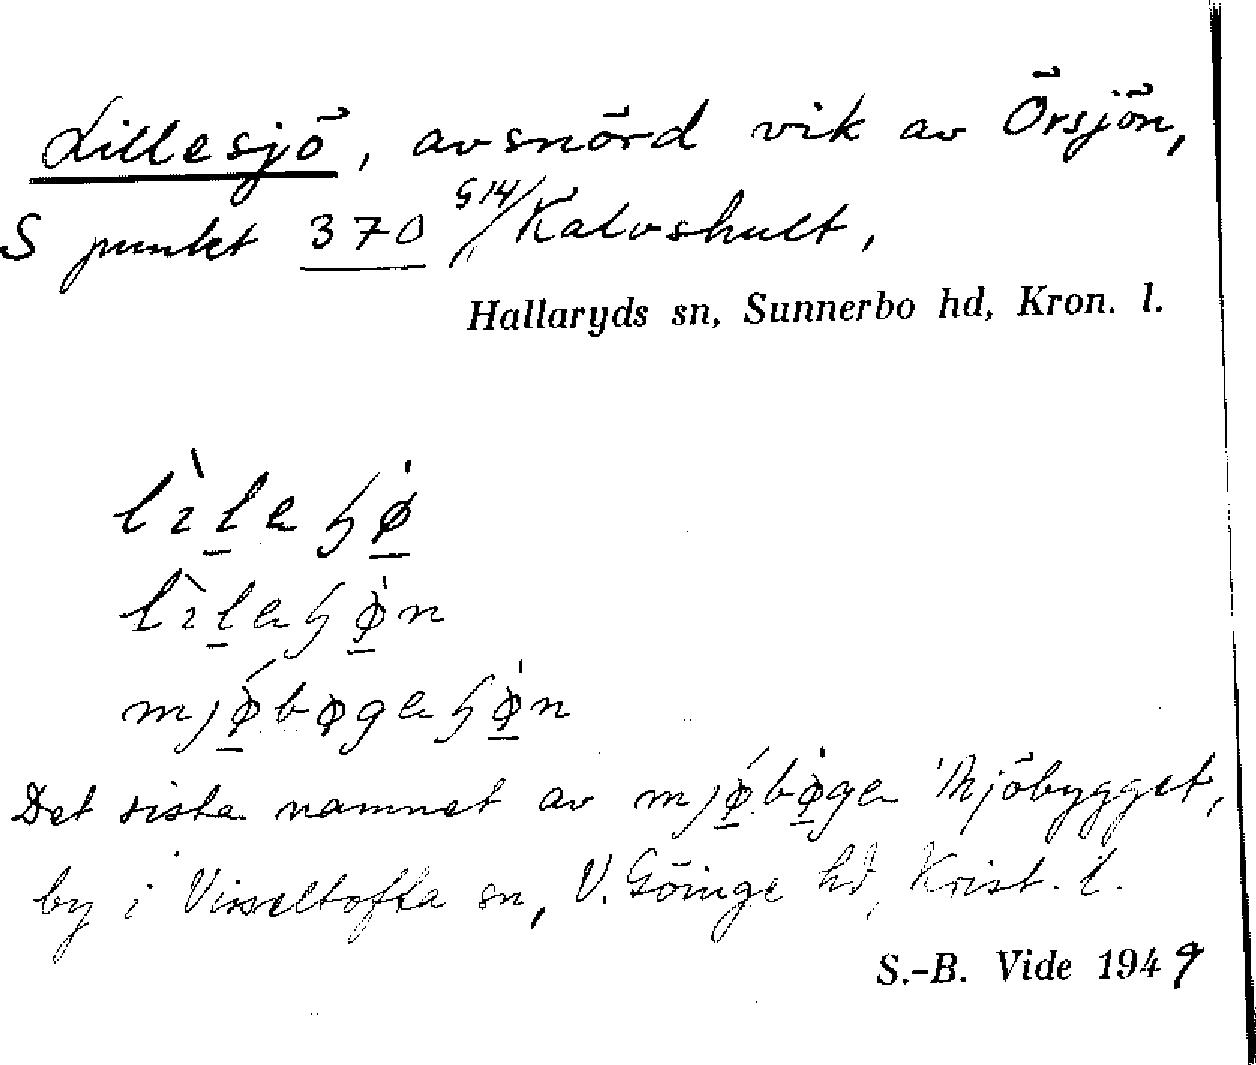 Lillesjö, avsnörd vik av Örsjön,
S punkt 370 G14/Kalvshult,
Hallaryds sn, Sunnerbo hd, Kron. l.
Det sista namnet av Mjöbygget,
by i Visseltofta sn, V. Göinge hd, Krist. l.
S.-B. Vide 1949